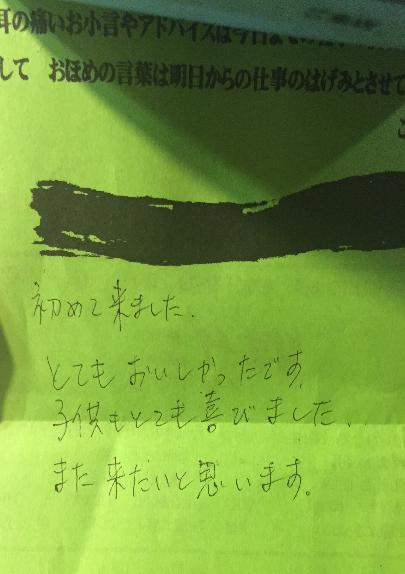 耳の痛いお小言やアドバイスは今日までの
して おほめの言葉は明日からの仕事のはげみとさせて
初めて来ました.
とてもおいしかったです.
子供もとても喜びました.
また来たいと思います。